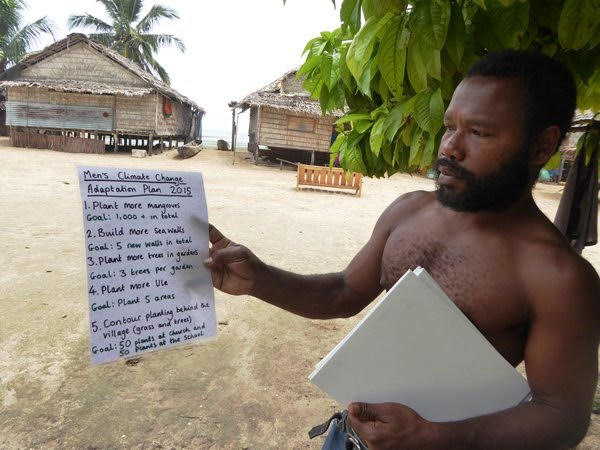 Men's Climate Change
Adaptation Plan 2015
1. Plant more mangroves
Goal: 1,000 + in total
2. Build More Sea Walls
Goal: 5 new walls in total
3. Plant more trees in gardens
Goal: 3 trees per garden
4. Plant More Ule
Goal: Plant 5 areas
5. Contour planting behind the
village (grass and trees)
Goal: 50 plants at church and
50 plants at the school